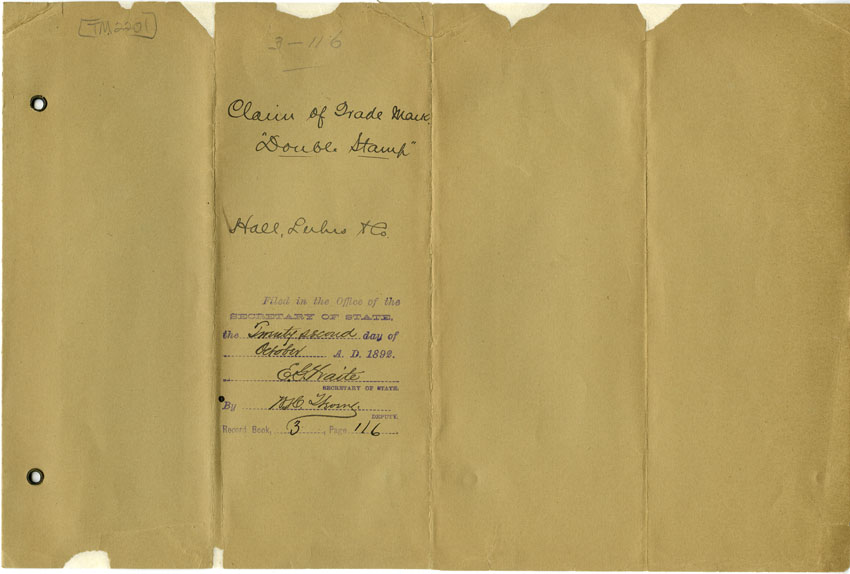 [TM2201]
3-116
Claim of Trade Mark
"Double Stamp"
Hall, Luhrs & Co.
Filed in the Office of the
SECRETARY OF STATE,
the Twenty second day of
October A. D. 1892.
E.G. Waite
SECRETARY OF STATE.
By
DEPUTY.
Record Book, 3, Page 116